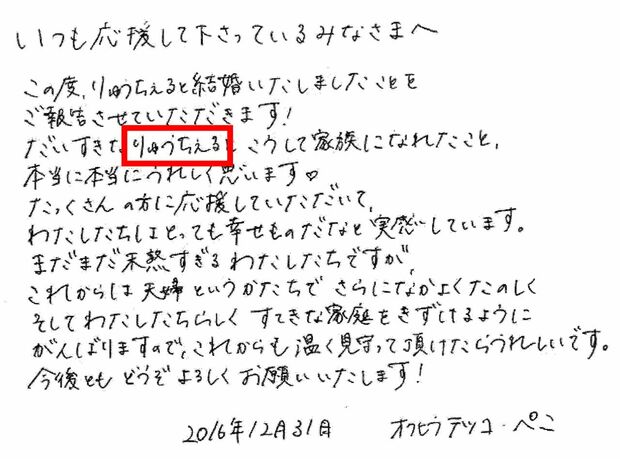 いつも応援して下さっているみなさまへ
この度、りゅうちぇると結婚いたしましたことを
ご報告させていただきます!
だいすきなりゅうちぇるとこうして家族になれたこと、
本当に本当にうれしく思います♡
たっくさんの方に応援していただいて、
わたしたちはとっても幸せものだなと実感しています。
まだまだ未熟すぎるわたしたちですが、
これからは夫婦というかたちでさらになかよくたのしく
そしてわたしたちらしくすてきな家庭をきずけるように
がんばりますので、これからも温く見守って頂けたらうれしいです。
今後ともどうぞよろしくお願いいたします!
2016年12月31日 オクヒラテツコ・ぺこ